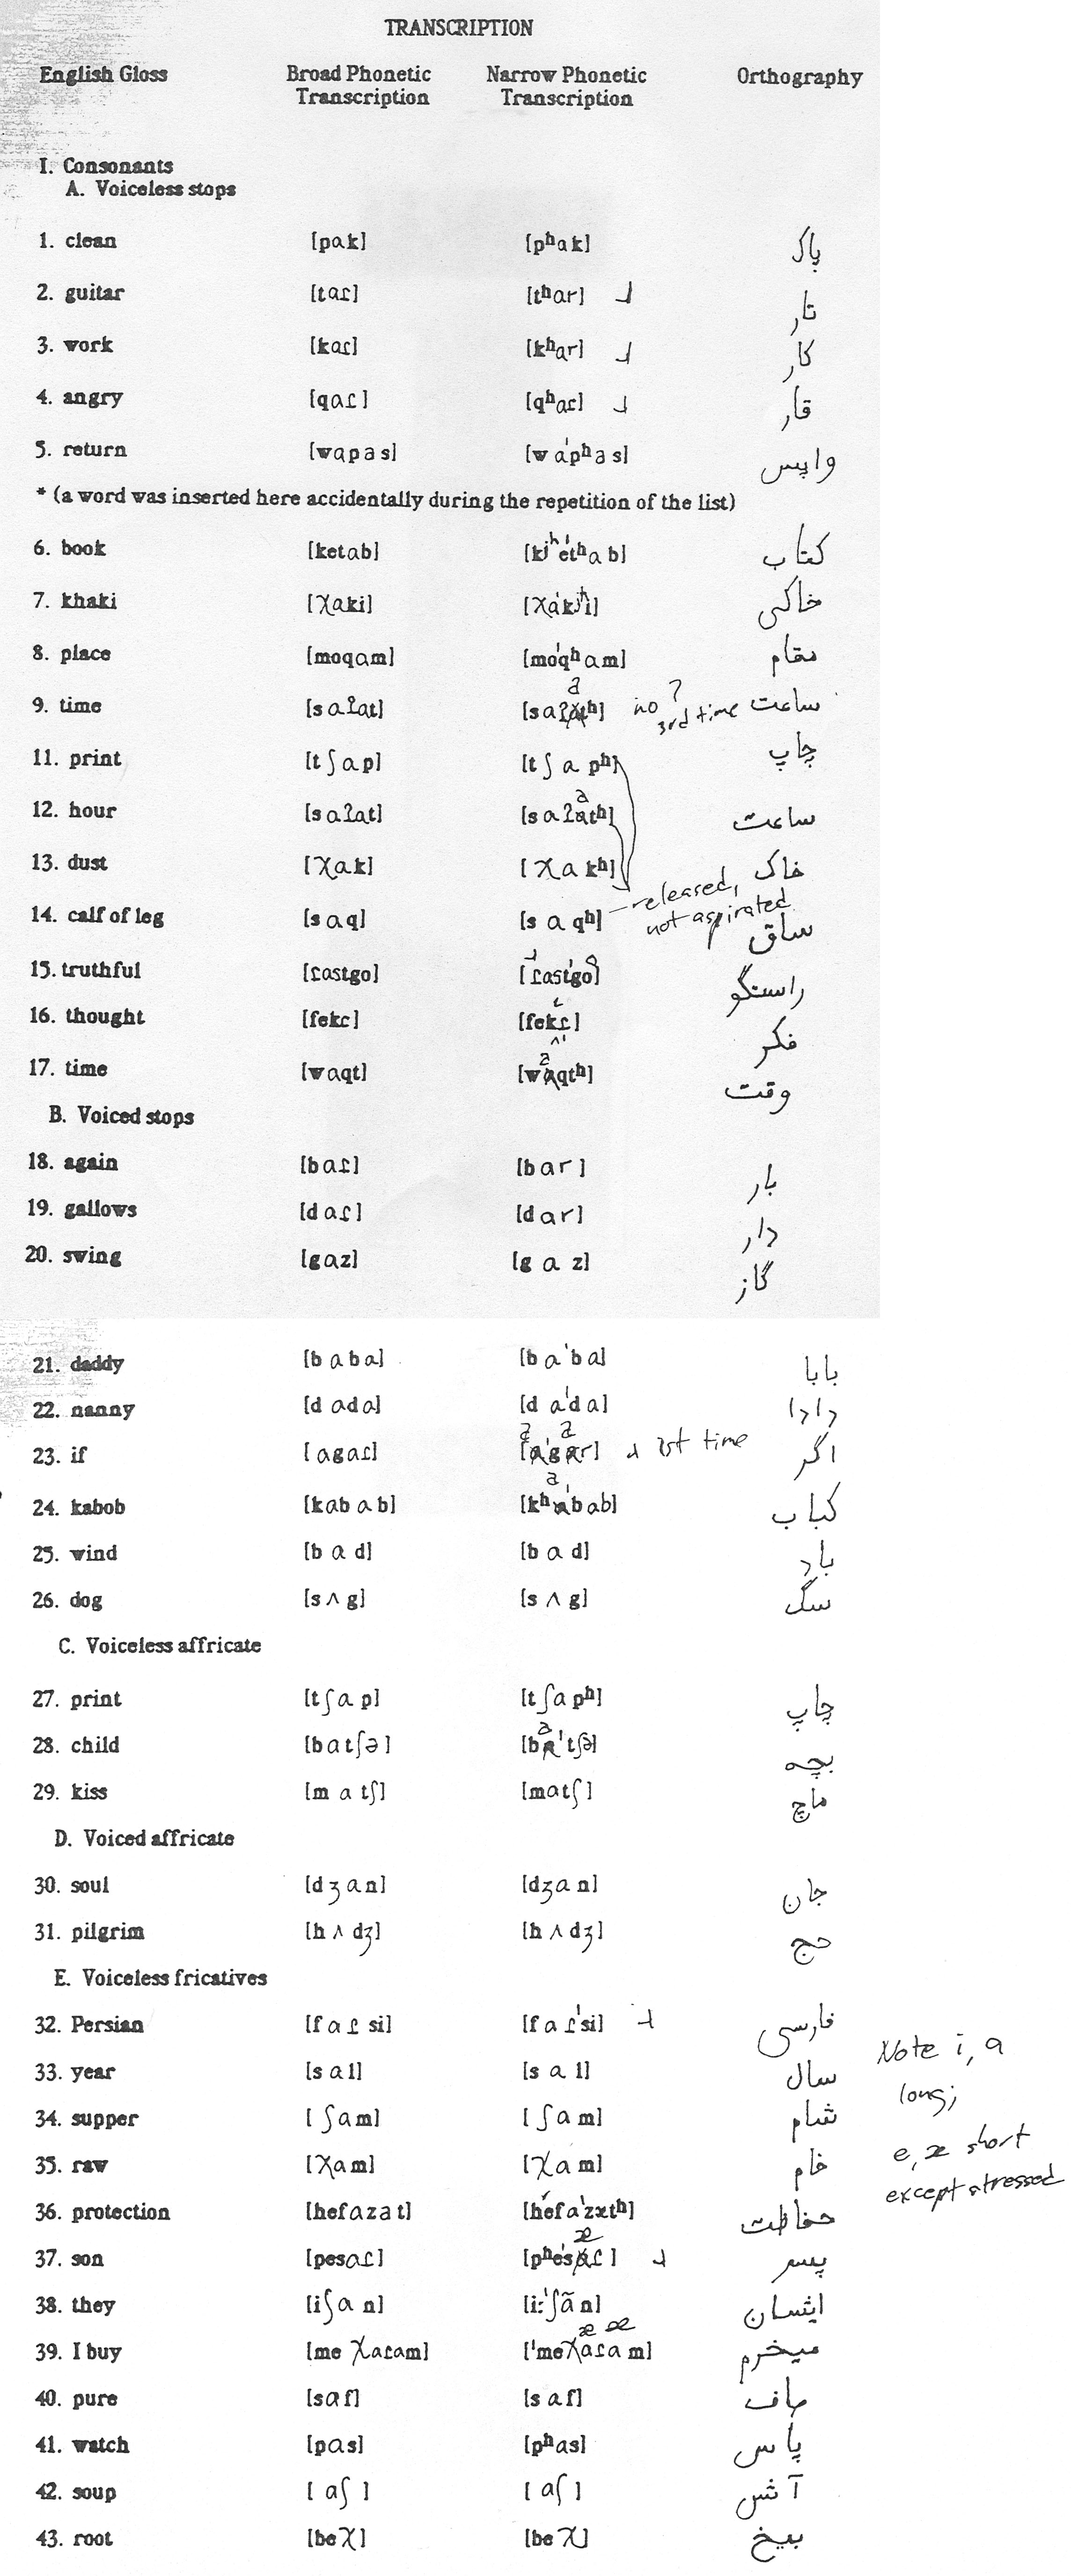 TRANSCRIPTION
English Gloss Broad Phonetic Transcription Narrow Phonetic Transcription Orthography
I. Consonants
A. Voiceless stops
1. clean [pɑk] [pʰɑk] پاک
2. guitar [tɑɾ] [tʰɑr] ɹ تار
3. work [kɑɾ] [kʰɑr] ɹ کار
4. angry [qɑɾ] [qʰɑɾ] ɹ قار
5. return [wɑpas] [wɑ'pʰas] واپس
* (a word was inserted here accidentally during the repetition of the list)
6. book [ketɑb] [kʲʰe'tʰɑb] کتاب
7. khaki [χɑki] [χɑ'kʲʰi] خاکی
8. place [moqɑm] [mo'qʰɑm] مقام
9. time [sɑʔat] [sɑʔatʰ] no ? 3rd time ساعت
11. print [tʃɑp] [tʃɑpʰ] چاپ
12. hour [sɑʔat] [sɑʔatʰ] ساعت
13. dust [χɑk] [χɑkʰ] خاک
14. calf of leg [sɑq] [sɑqʰ] released, not aspirated ساق
15. truthful [ɾɑstgo] [ɾɑst'go] راستگو
16. thought [fekɾ] [fekɾ] فکر
17. time [waqt] [waqtʰ] وقت
B. Voiced stops
18. again [bɑɾ] [bɑr] بار
19. gallows [dɑɾ] [dɑr] دار
20. swing [gɑz] [gɑz] گاز
21. daddy [bɑbɑ] [bɑ'bɑ] بابا
22. nanny [dɑdɑ] [dɑ'dɑ] دادا
23. if [agaɾ] [a'gar] ɹ 1st time اگر
24. kabob [kabɑb] [kʰa'bɑb] کباب
25. wind [bɑd] [bɑd] باد
26. dog [sʌg] [sʌg] سگ
C. Voiceless affricate
27. print [tʃɑp] [tʃɑpʰ] چاپ
28. child [batʃə] [ba'tʃə] بچه
29. kiss [mɑtʃ] [mɑtʃ] ماچ
D. Voiced affricate
30. soul [dʒɑn] [dʒɑn] جان
31. pilgrim [hʌdʒ] [hʌdʒ] حج
E. Voiceless fricatives
32. Persian [fɑɾsi] [fɑɾ'si] ɹ فارسی
33. year [sɑl] [sɑl] سال
34. supper [ʃɑm] [ʃɑm] شام
35. raw [χɑm] [χɑm] خام
36. protection [hefɑzat] [hefɑ'zætʰ] حفاظت
37. son [pesaɾ] [pʰe'sæɾ] ɹ پسر
38. they [iʃɑn] [i:'ʃɑ̃n] ایشان
39. I buy [meχaɾam] ['meχæɾæm] میخرم
40. pure [sɑf] [sɑf] صاف
41. watch [pɑs] [pʰɑs] پاس
42. soup [ɑʃ] [ɑʃ] آش
43. root [beχ] [beχ] بیخ
Note i, ɑ
long;
e, æ short
except stressed